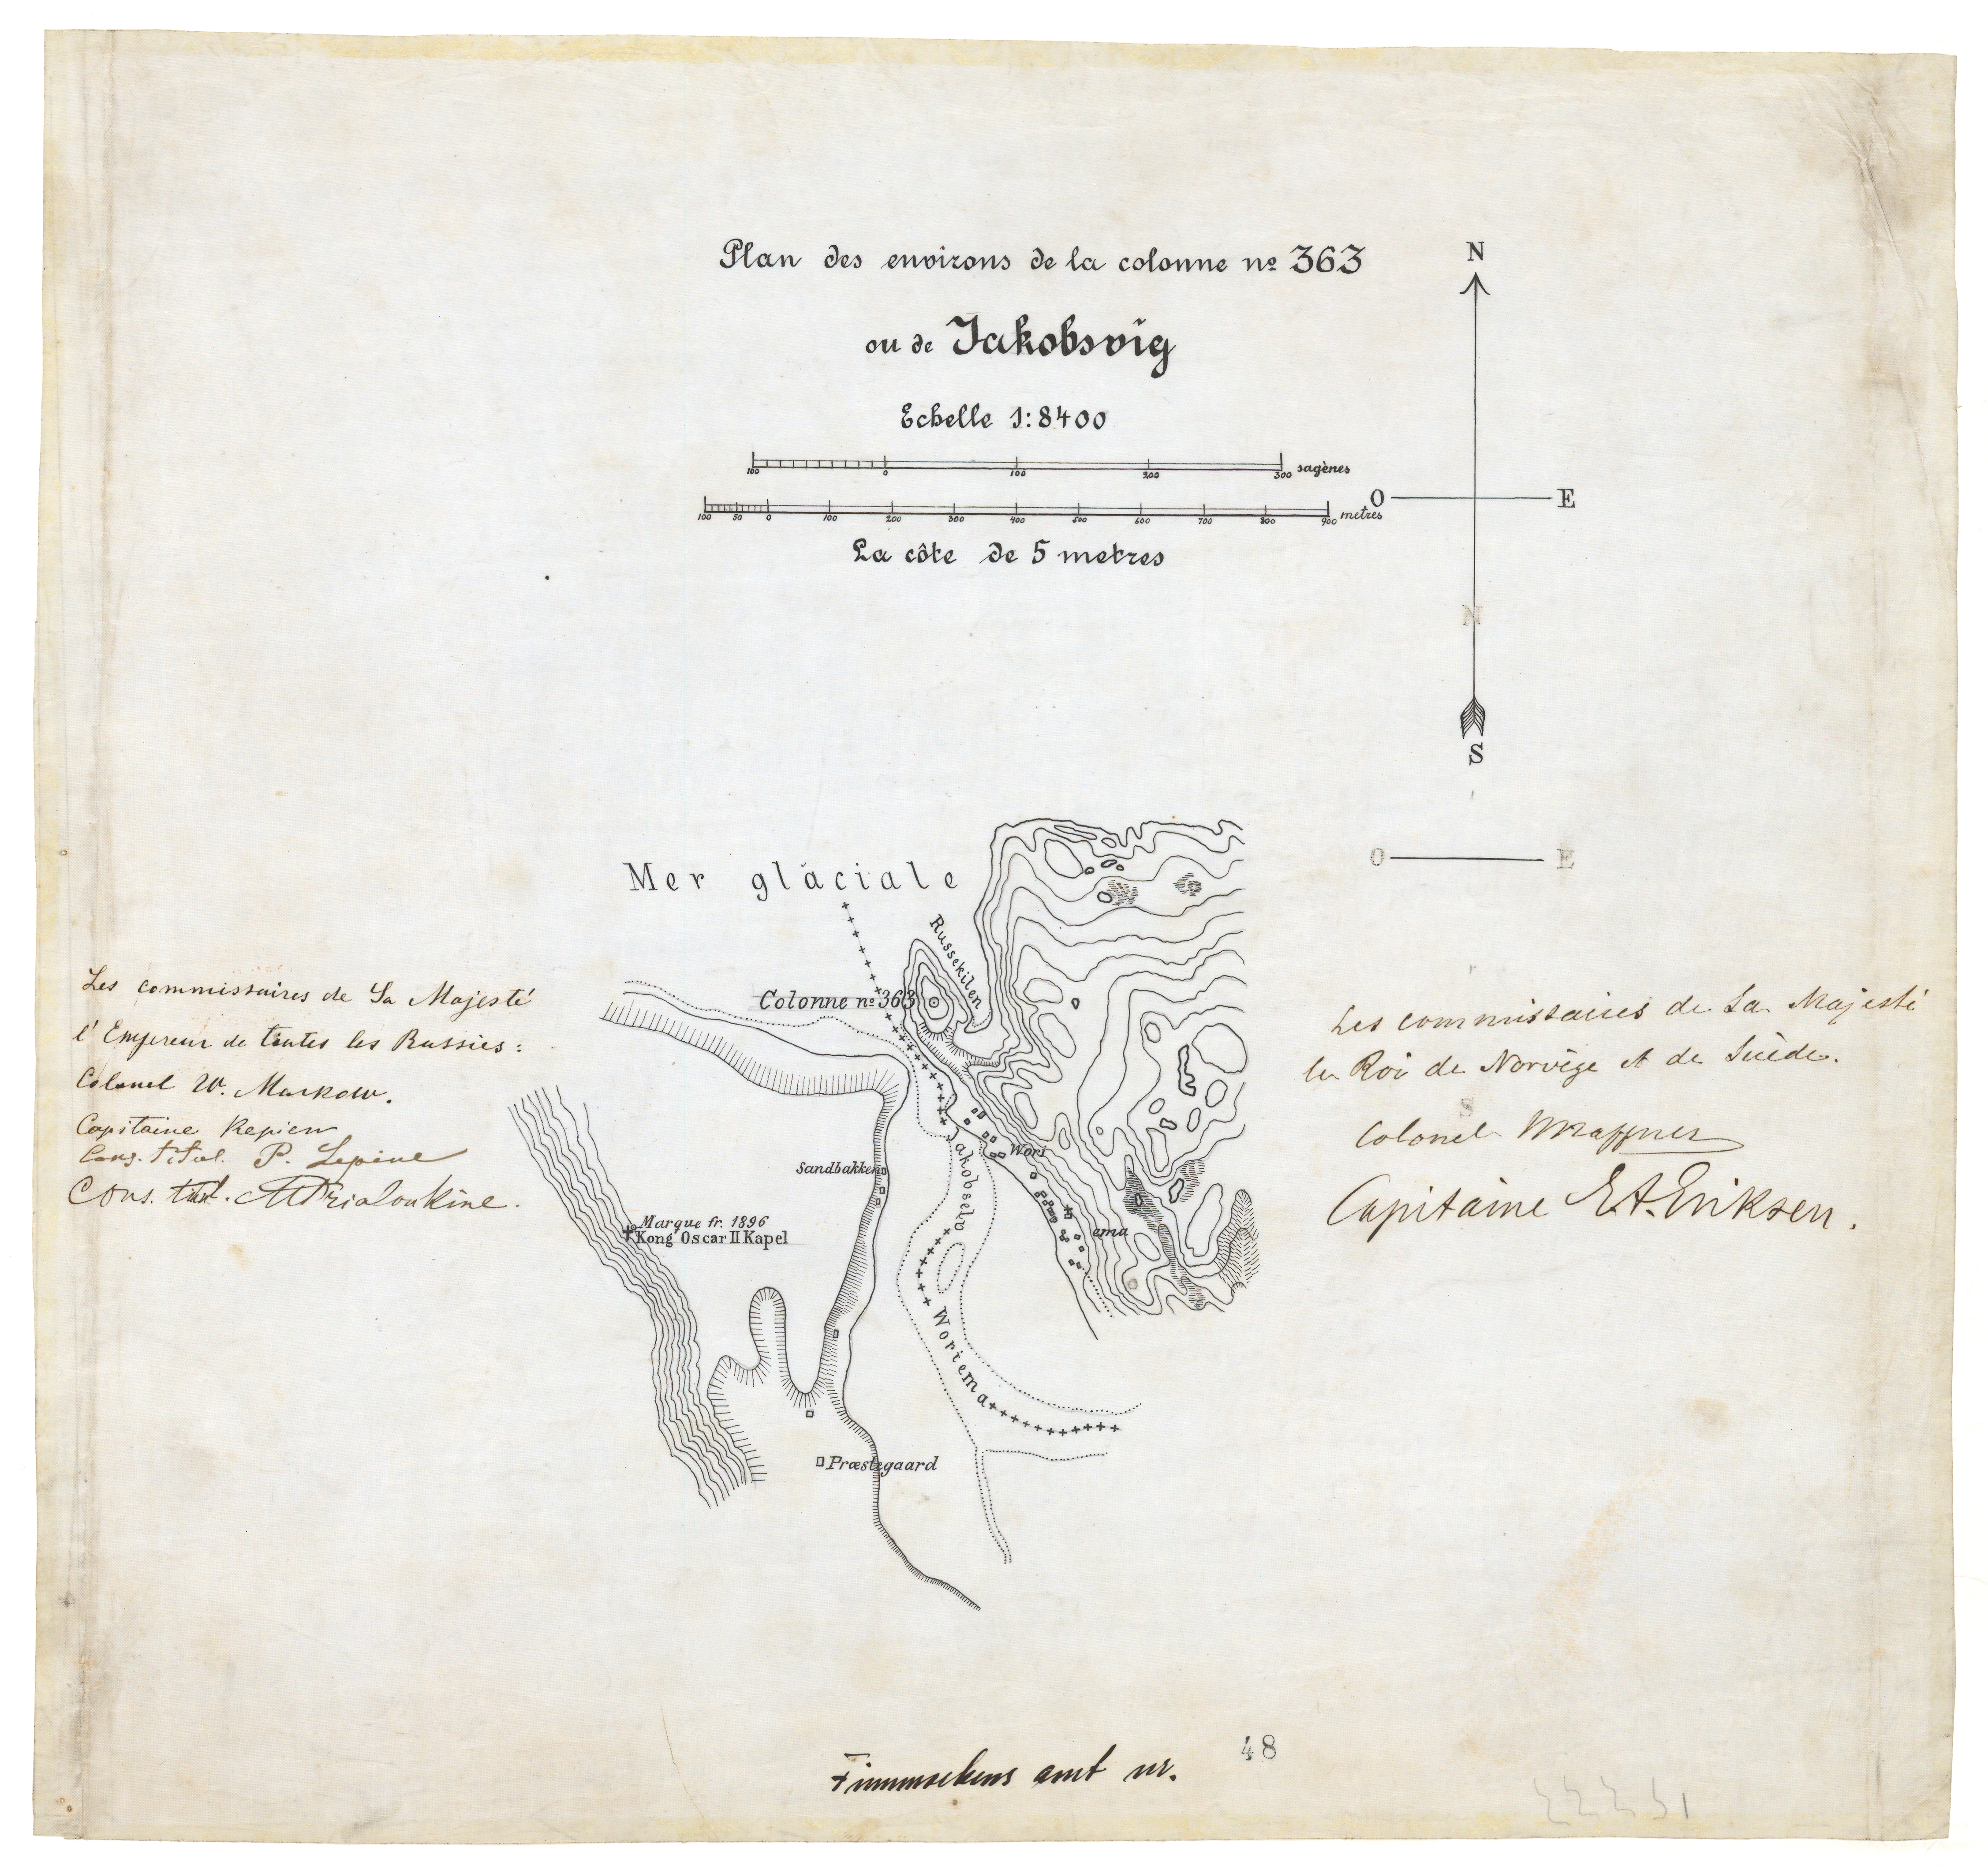 Plan des environs de la colonne no 363
ou de Jakobsvig
Echelle 1:8400
100 0 100 200 300 sagènes
100 50 0 100 200 300 400 500 600 700 800 900 metres
La côte de 5 metres
N
O E
N
S
O E
S
Mer glaciale
Russekilen
Colonne no 363
Jakobselv
Wori
ema
Sandbakken
Marque fr. 1896
Kong Oscar II Kapel
Woriema
Præstegaard
Les commissaires de Sa Majesté
l'Empereur de toutes les Russies:
Colonel W. Markow.
Capitaine Repiew
Cons. titul. P. Lepine
Cons. tit.
Les commissaires de Sa Majesté
le Roi de Norvège et de Suède.
Colonel
Capitaine E.A. Eriksen.
Finmarkens amt nr. 48